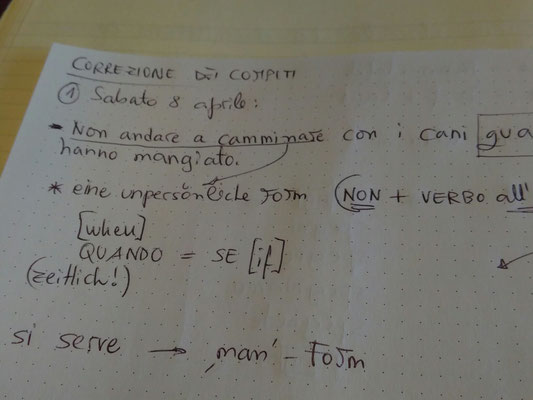 CORREZIONE DEI COMPITI
① Sabato 8 aprile:
- Non andare a camminare con i cani gua
hanno mangiato.
* eine unpersönliche Form (NON + VERBO all'
[when]
QUANDO = SE [if]
(zeitlich!)
si serve → „man" - Form